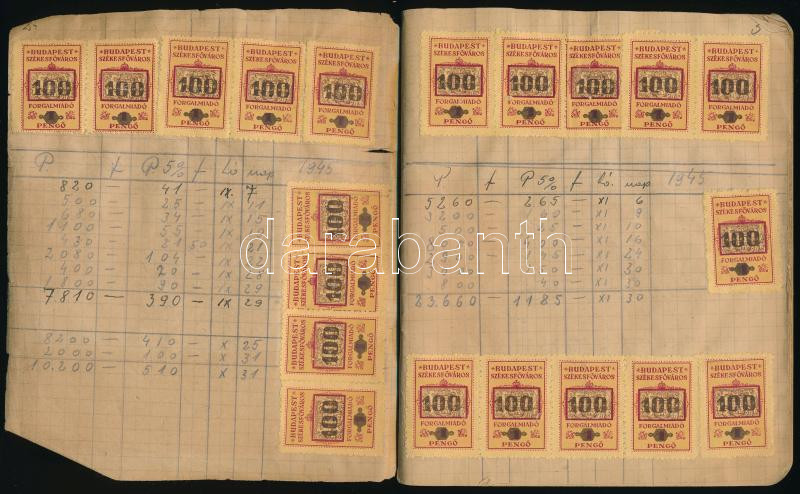 BUDAPEST BUDAPEST BUDAPEST BUDAPEST BUDAPEST
SZÉKESFŐVÁROS SZÉKESFŐVÁROS SZÉKESFŐVÁROS SZÉKESFŐVÁROS SZÉKESFŐVÁROS
100 100 100 100 100
FORGALMIADÓ FORGALMIADÓ FORGALMIADÓ FORGALMIADÓ FORGALMIADÓ
PENGŐ PENGŐ PENGŐ PENGŐ PENGŐ
P. f P 5% f Hó nap 1945
820 — 41 — IX 7
500 — 25 — IX 11
680 — 34 — IX 15
1100 — 55 — IX
30 — 21 50 IX 21
2080 — 104 — IX
400 — 20 — IX 28
800 — 90 — IX 29
7.810 — 390 — IX 29
8200 — 410 — X 25
2000 — 100 — X 31
10.200 — 510 X 31
BUDAPEST SZÉKESFŐVÁROS 100 FORGALMIADÓ PENGŐ
BUDAPEST SZÉKESFŐVÁROS 100 FORGALMIADÓ PENGŐ
BUDAPEST SZÉKESFŐVÁROS 100 FORGALMIADÓ PENGŐ
BUDAPEST SZÉKESFŐVÁROS 100 FORGALMIADÓ PENGŐ
BUDAPEST BUDAPEST BUDAPEST BUDAPEST BUDAPEST
SZÉKESFŐVÁROS SZÉKESFŐVÁROS SZÉKESFŐVÁROS SZÉKESFŐVÁROS SZÉKESFŐVÁROS
100 100 100 100 100
FORGALMIADÓ FORGALMIADÓ FORGALMIADÓ FORGALMIADÓ FORGALMIADÓ
PENGŐ PENGŐ PENGŐ PENGŐ PENGŐ
P. f P 5% f Hó. nap 1945
5260 — 265 — XI 6
3200 — XI 9
XI 10
XI 16
XI 24
XI 30
800 40 XI 30
23.660 — 1185 — XI 30
BUDAPEST
SZÉKESFŐVÁROS
100
FORGALMIADÓ
PENGŐ
BUDAPEST BUDAPEST BUDAPEST BUDAPEST BUDAPEST
SZÉKESFŐVÁROS SZÉKESFŐVÁROS SZÉKESFŐVÁROS SZÉKESFŐVÁROS SZÉKESFŐVÁROS
100 100 100 100 100
FORGALMIADÓ FORGALMIADÓ FORGALMIADÓ FORGALMIADÓ FORGALMIADÓ
PENGŐ PENGŐ PENGŐ PENGŐ PENGŐ
darabanth